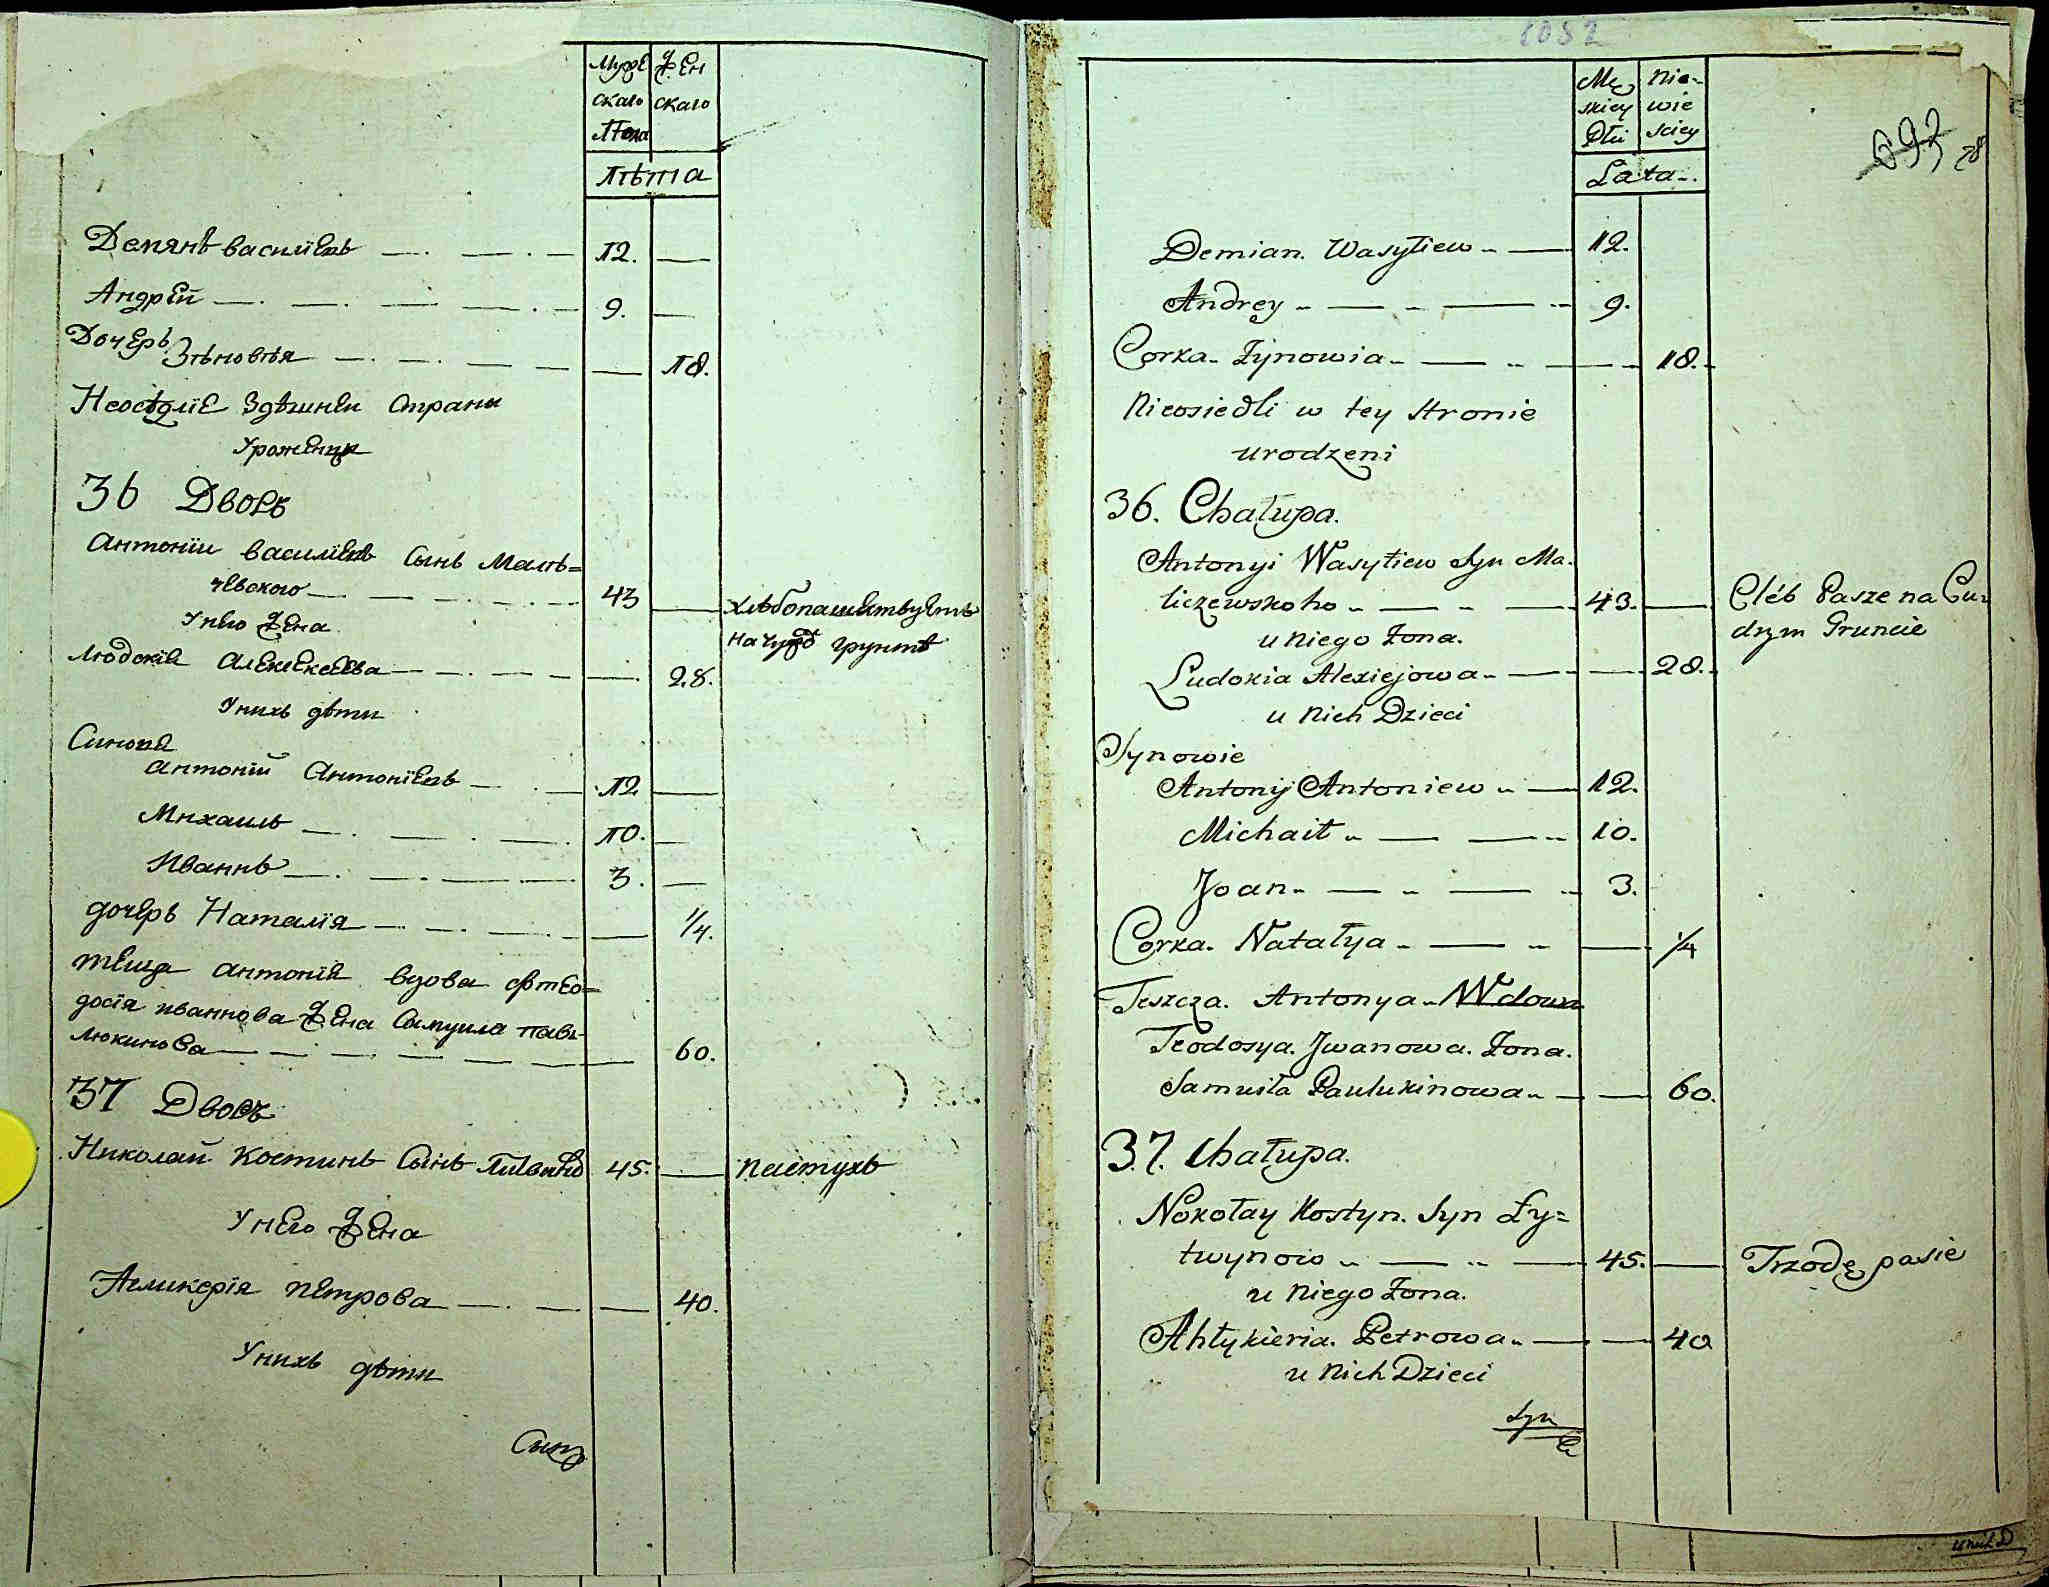 Муже Жен
скаго скаго
Пола
Лѣта
Демянъ василіевъ — 12. —
Андрей — 9. —
Дочерь Зѣновѣя — 18.
Неосѣдліе здѣшнеи Страны
Уроженци
36 Дворъ
Антоніи василіевъ Сынъ Малѣ=
чевского — 43 — хлѣбопашествуетъ
У него Жена на чужо грунтѣ
Людокія Алексеева — 28.
У нихъ дѣти
Синовя
Антоній Антоніевъ — 12 —
Михаилъ — 10. —
Иваннъ — 3. —
дочерь Наталія — 1/4.
теща Антонія вдова Фтео=
досія иваннова Жена Самуила Павъ
люкинова — 60.
37 Дворъ
Николай Костинъ Сынъ Литвинов 45. — пастухъ
У него Жена
Агликерія петрова — 40.
У нихъ дѣти
Сынъ
1052
Mę Nie-
skiey wie
Płci sciey
Lata
693 78
Demian. Wasyliew — 12.
Andrey — 9.
Corka. Zynowia — 18.
Nieosiedli w tey Stronie
urodzeni
36. Chałupa.
Antonyi Wasyliew Syn Ma.
liczewskoho — 43. — Cléb Pasze na Cu=
u niego Zona. dzym Gruncie
Ludokia Alexiejowa — 28.
u Nich Dzieci
Synowie
Antonij Antoniew — 12.
Michaił — 10.
Joan — 3.
Corka. Natałya — 1/4
Teszcza. Antonya Wdowa
Teodosya. Jwanowa. Zona.
Samuiła Paulukinowa — 60.
37. Chałupa.
Nokołay Kostyn. Syn Ły=
twynow — 45. — Trzodę pasie
u Niego Zona.
Ahłykieria. Petrowa — 40
u Nich Dzieci
Syn